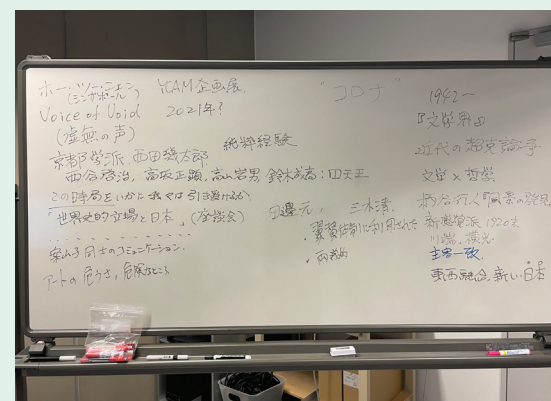 ホー・ツーニェン YCAM企画展.
(シンガポール)
Voice of Void 2021年?
(虚無の声)
純粋経験
京都学派. 西田幾太郎
西谷啓治, 高坂正顕, 高山岩男, 鈴木成高: 四天王
この時局をいかに 引き受けるか
「世界史的立場と日本」 (座談会)
同士のコミュニケーション.
アートの危うさ, 危険なところ
"コロナ"
三木清.
・翼賛体制に利用された
・両義的
1942〜
『文学界』
近代の超克論争
文学×哲学
柄谷行人「風景の発見
新感覚派 1920s
川端, 横光
主客一致.
東西融合, 新しい日本